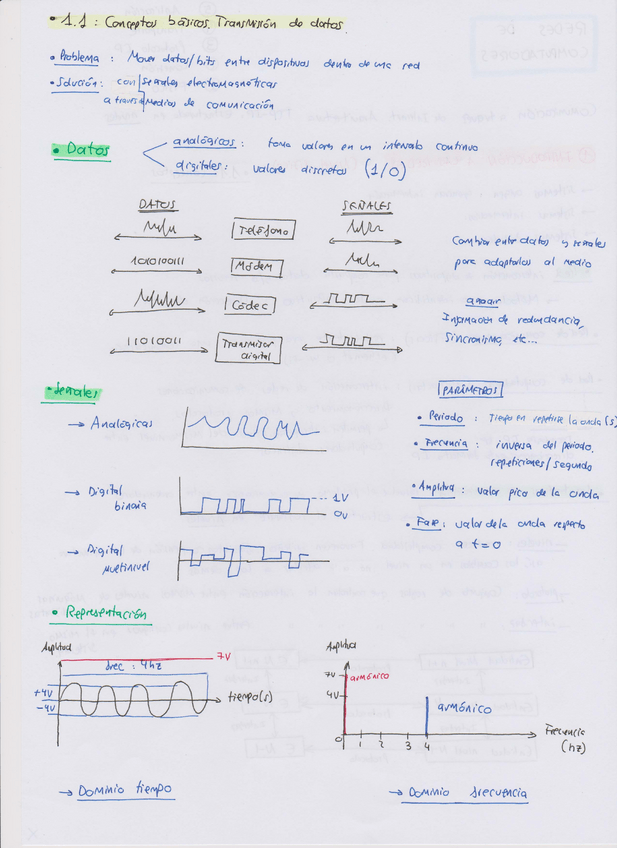 • 1.1 : Conceptos básicos. Transmisión de datos.
• Problema : Mover datos/bits entre dispositivos dentro de una red
• Solución : con señales electromagnéticas
a través medios de comunicación
• Datos
analógicos : toma valores en un intervalo continuo
digitales : valores discretos (1/0)
DATOS SEÑALES
Teléfono
1010100111 Módem
Códec
11010011 Transmisor digital
Cambiar entre datos y señales
para adaptarlos al medio
añadir
Información de redundancia,
sincronismo, etc...
• Señales
→ Analógicas
→ Digital
binaria
1V
0V
→ Digital
multinivel
PARÁMETROS
• Periodo : Tiempo en repetirse la onda (s)
• Frecuencia : inversa del periodo.
repeticiones/segundo
• Amplitud : valor pico de la onda
• Fase : valor de la onda respecto
a t=0
• Representación
Amplitud
7V
frec : 4hz
+4V
-4V
tiempo(s)
→ Dominio tiempo
Amplitud
7V armónico
4V
armónico
0 1 2 3 4
Frecuencia
(hz)
→ Dominio frecuencia